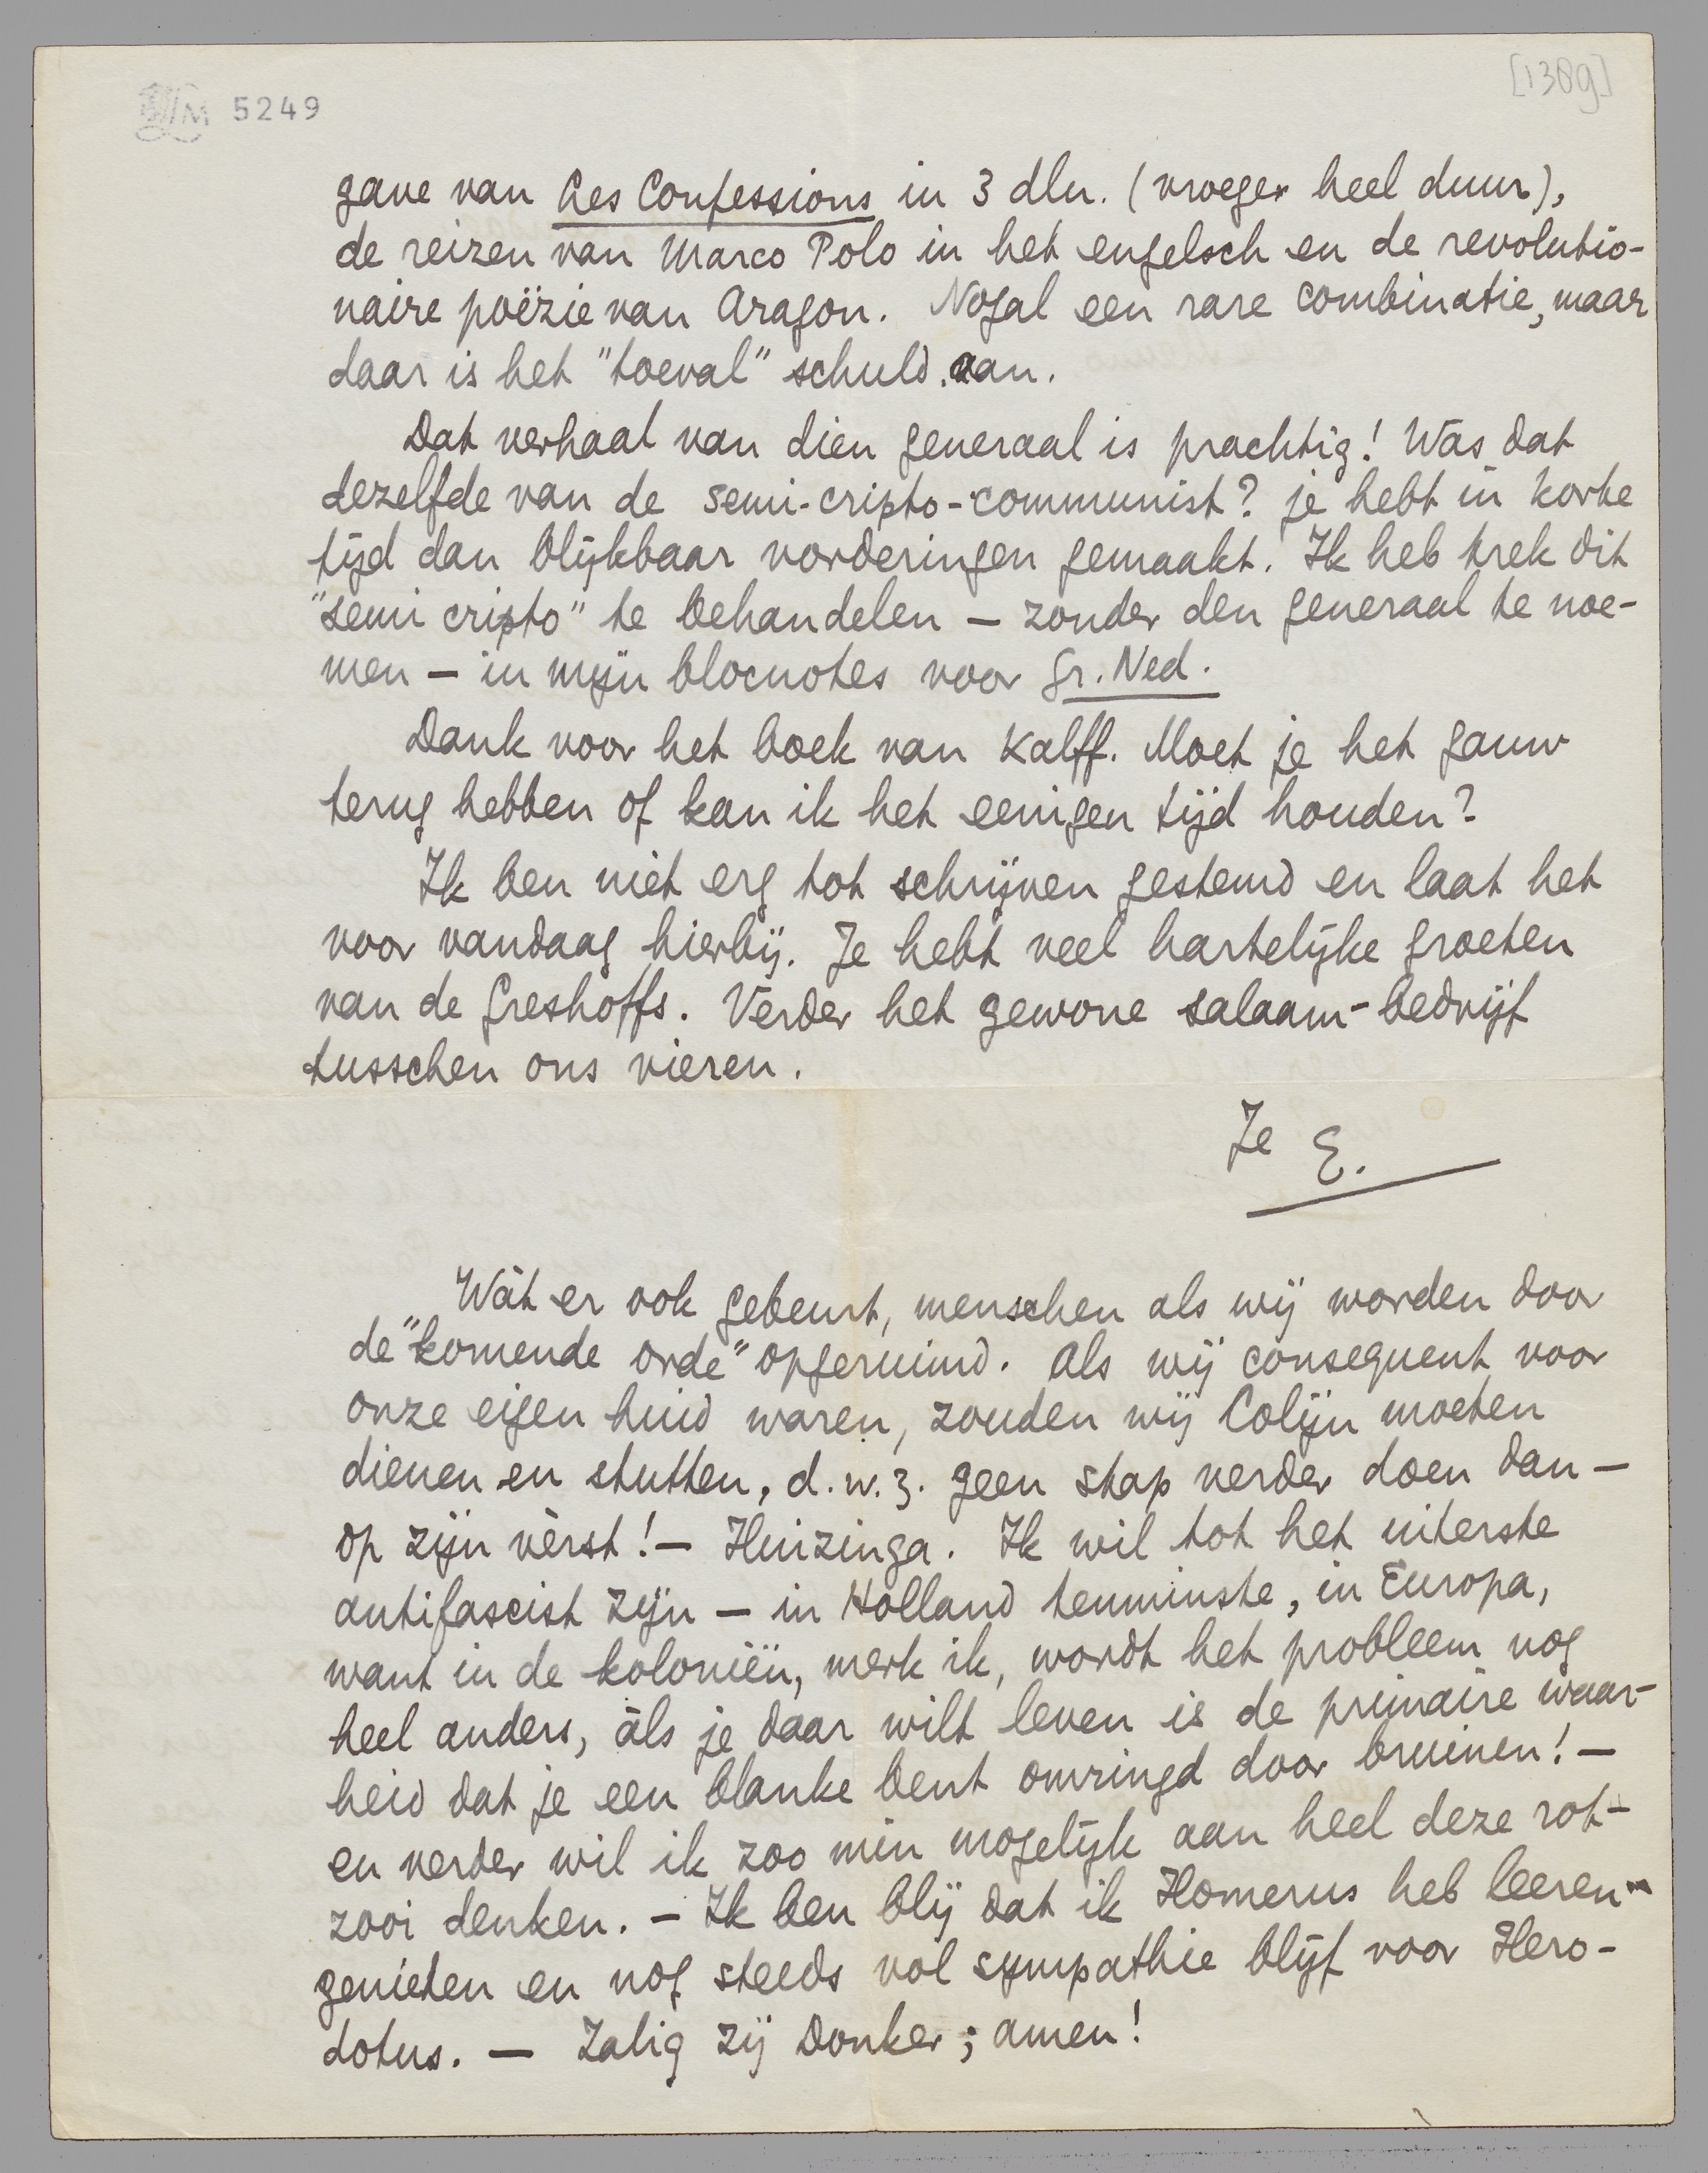 LM 5249
[1389]
gave van Les Confessions in 3 dln. (vroeger heel duur),
de reizen van Marco Polo in het engelsch en de revolutio-
naire poëzie van Aragon. Nogal een rare combinatie, maar
daar is het "toeval" schuld aan.
Dat verhaal van dien generaal is prachtig! Was dat
dezelfde van de semi-cripto-communist? je hebt in korte
tijd dan blijkbaar vorderingen gemaakt. Ik heb trek dit
"semi cripto" te behandelen — zonder den generaal te noe-
men — in mijn blocnotes voor Gr. Ned.
Dank voor het boek van Kalff. Moet je het gauw
terug hebben of kan ik het eenigen tijd houden?
Ik ben niet erg tot schrijven gestemd en laat het
voor vandaag hierbij. Je hebt veel hartelijke groeten
van de Greshoffs. Verder het gewone salaam-bedrijf
tusschen ons vieren.
Je E.
Wàt er ook gebeurt, menschen als wij worden door
de "komende orde" opgeruimd. Als wij consequent voor
onze eigen huid waren, zouden wij Colijn moeten
dienen en stutten, d.w.z. geen stap verder doen dan —
op zijn vèrst! — Huizinga. Ik wil tot het uiterste
antifascist zijn — in Holland tenminste, in Europa,
want in de koloniën, merk ik, wordt het probleem nog
heel anders, àls je daar wilt leven is de primaire waar-
heid dat je een blanke bent omringd door bruinen! —
en verder wil ik zoo min mogelijk aan heel deze rot-
zooi denken. — Ik ben blij dat ik Homerus heb leeren
genieten en nog steeds vol sympathie blijf voor Hero-
dotus. — Zalig zij Donker; amen!